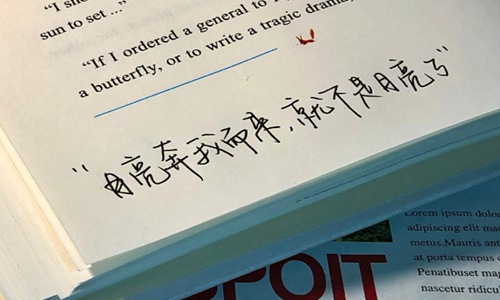 "I sh
sun to set ..."
"If I ordered a general to
a butterfly, or to write a tragic drama,
"月亮奔我而来,就不是月亮了"
Lorem ipsum dolo
adipiscing elit
metus.Mauris ant
at porta tempus
Penatibus mag
nascetur ridicu
PPOIT